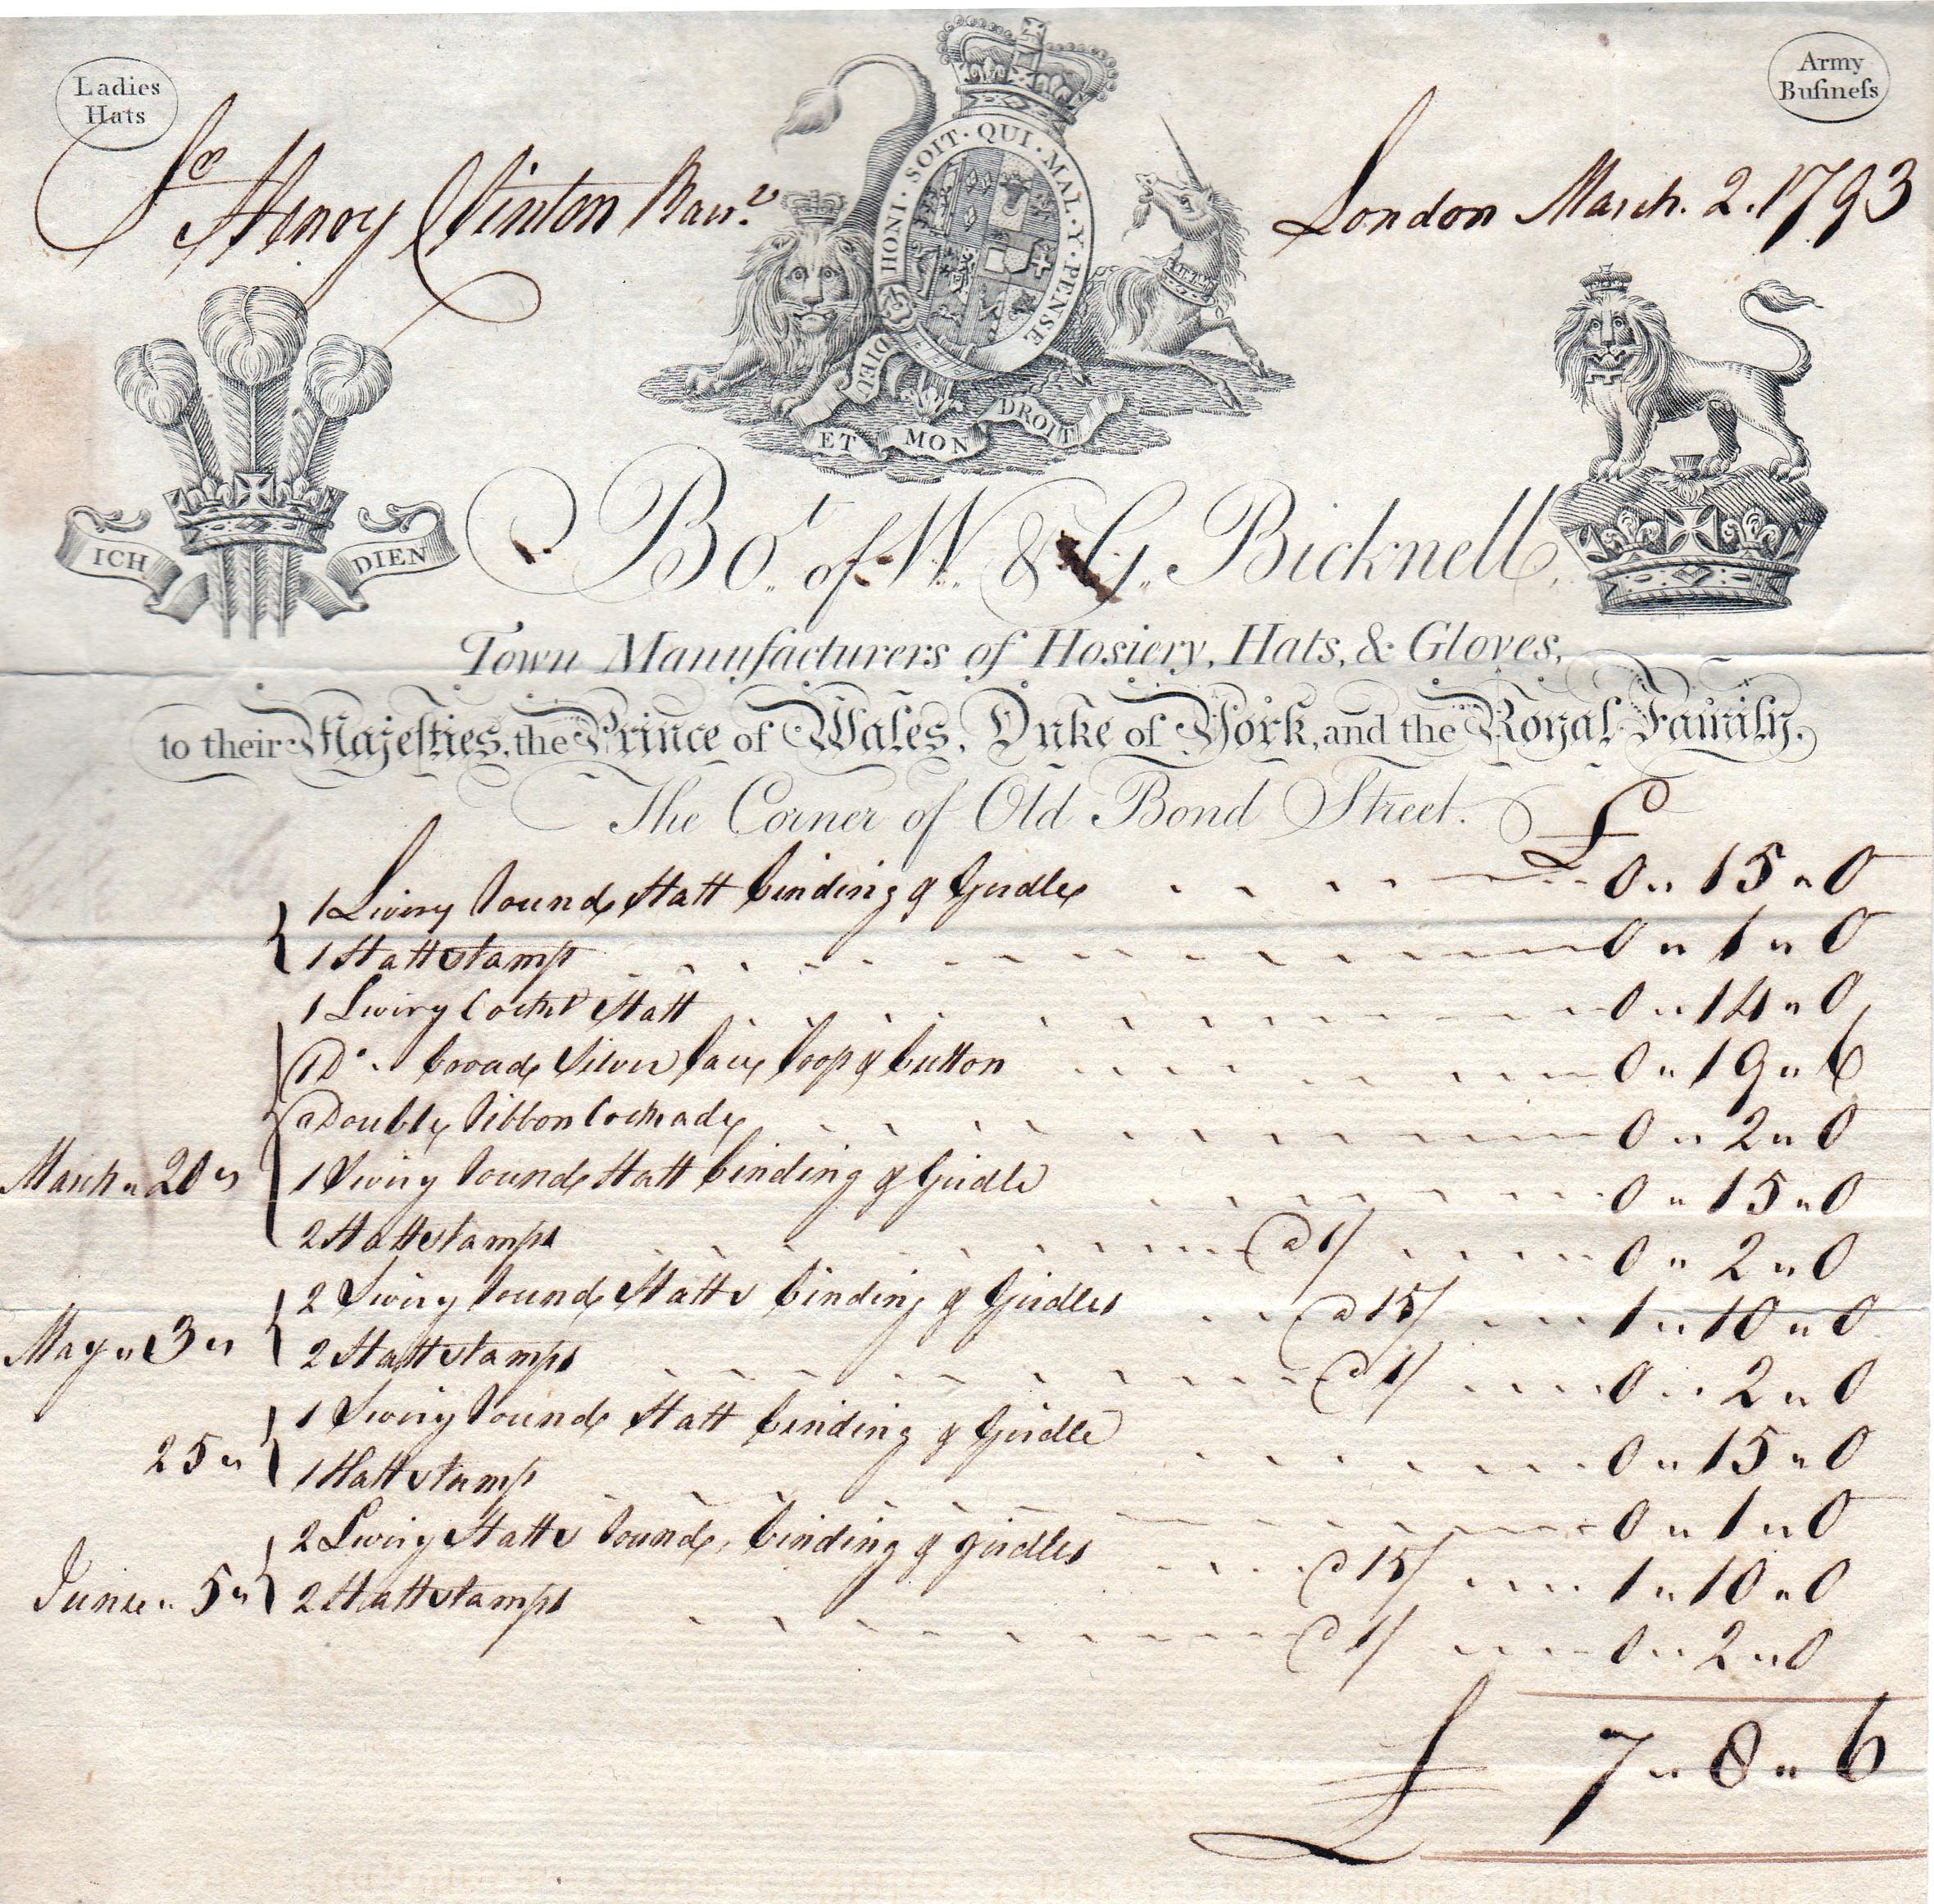 Ladies
Hats
Army
Buſineſs
Sr Henry Clinton Barrt
London March. 2. 1793
HONI · SOIT · QUI · MAL · Y · PENSE
DIEU ET MON DROIT
ICH DIEN
Bot. of W. & G. Bicknell,
Town Manufacturers of Hosiery, Hats, & Gloves,
to their Majeſties, the Prince of Wales, Duke of York, and the Royal Family.
The Corner of Old Bond Street.
£
1 Livery round Hatt binding & Girdle 0 " 15 " 0
1 Hatt stamp 0 " 1 " 0
1 Livery Cockd Hatt 0 " 14 " 0
1 Do. broad Silver lace loop & button 0 " 19 " 6
a Double Ribbon Cockade 0 " 2 " 0
March " 20 " 1 Livery round Hatt binding & Girdle 0 " 15 " 0
2 Hatt stamps @ 1/ 0 " 2 " 0
2 Livery round Hatts binding & Girdles @ 15/ 1 " 10 " 0
May " 3 " 2 Hatt stamps @ 1/ 0 " 2 " 0
1 Livery round Hatt binding & Girdle 0 " 15 " 0
25 " 1 Hatt stamp 0 " 1 " 0
2 Livery Hatts round, binding & girdles @ 15/ 1 " 10 " 0
June " 5 " 2 Hatt stamps @ 1/ 0 " 2 " 0
£ 7 " 8 " 6